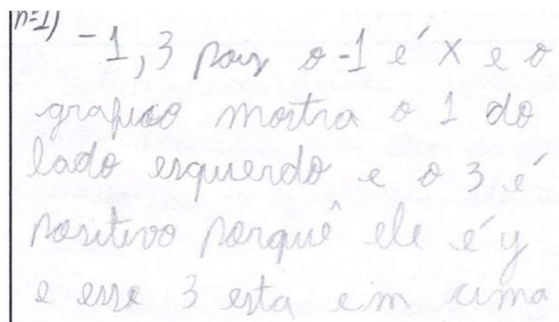 n=1) -1,3 pois o -1 é x e o
grafico mostra o 1 do
lado esquerdo e o 3 é
positivo porquê ele é y
e esse 3 esta em cima